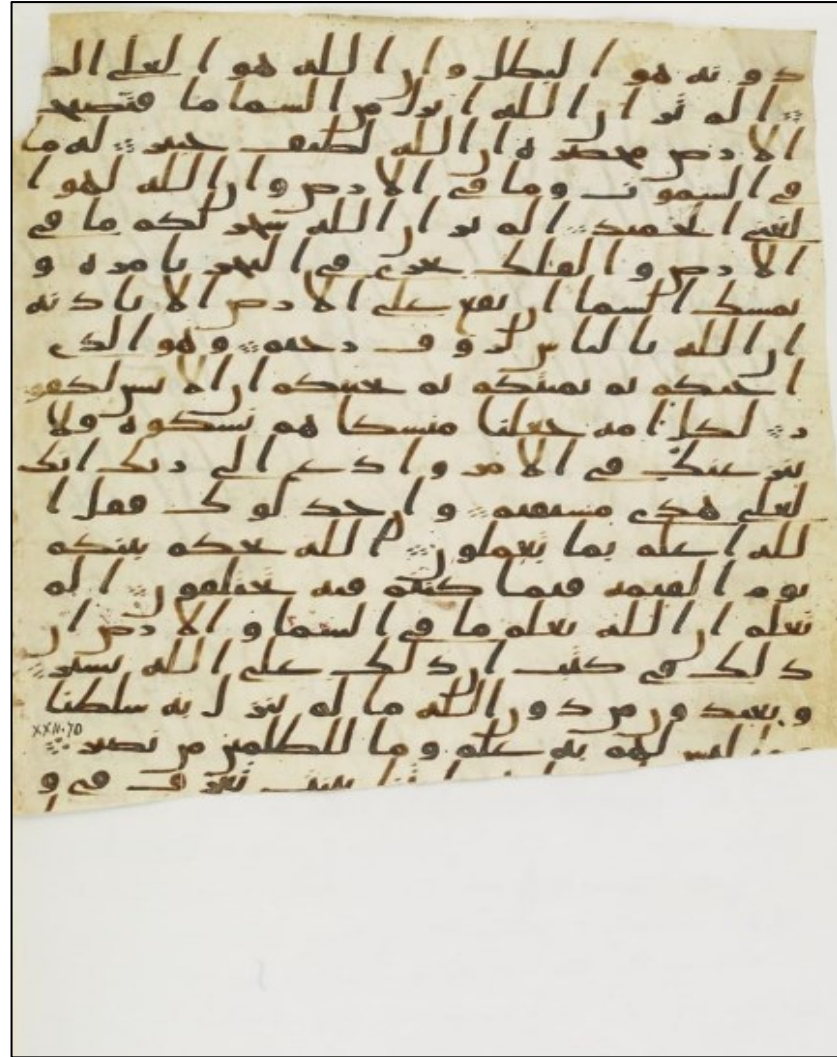 دونه هو البطل وان الله هو العلى الك
الم تر ان الله انزل من السما ما فتصبح
الارض مخضره ان الله لطيف خبير له ما
فى السموت وما فى الارض وان الله لهو ا
لغنى الحميد الم تر ان الله سخر لكم ما فى
الارض والفلك تجرى فى البحر بامره و
يمسك السما ان تقع على الارض الا باذنه
ان الله بالناس لروف رحيم وهو الذى
احيكم ثم يميتكم ثم يحييكم ان الانسن لكفو
ر لكل امه جعلنا منسكا هم نسكوه فلا
ينزعنك فى الامر وادع الى ربك انك
لعلى هدى مستقيم وان جدلوك فقل ا
لله اعلم بما تعملون الله يحكم بينكم
يوم القيمه فيما كنتم فيه تختلفون الم
تعلم ان الله يعلم ما فى السما والارض ان
ذلك فى كتب ان ذلك على الله يسير
ويعبدون من دون الله ما لم ينزل به سلطنا
XXII.70
ليس لهم به علم وما للظلمين من نصير
بينت تعرف فى و